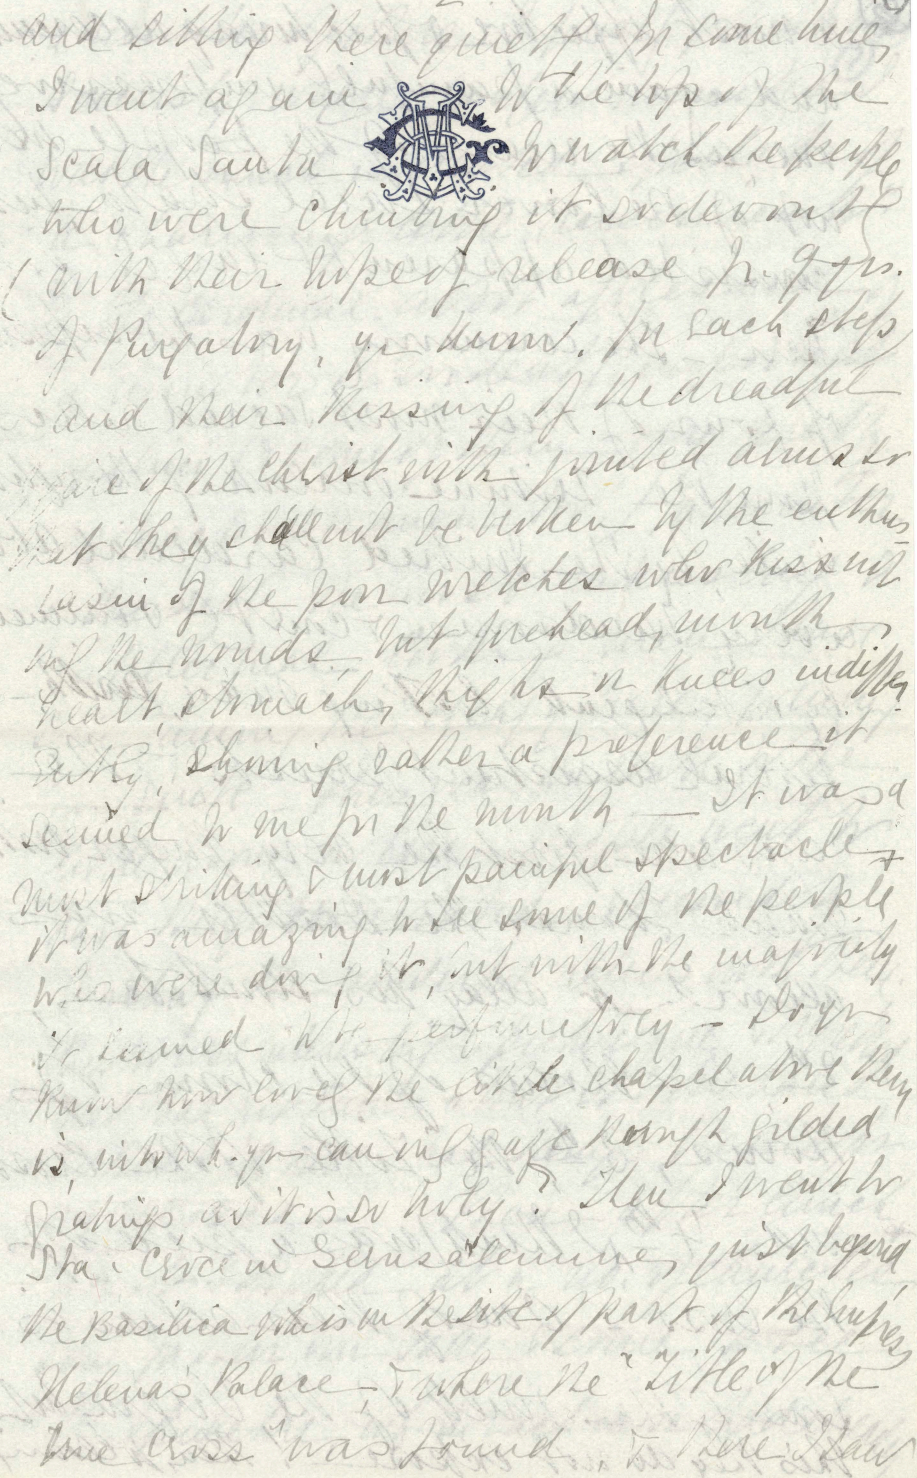 and sitting there quietly for some time,
I went again to the top of the
Scala Santa to watch the people
who were climbing it so devoutly
(with their hope of release fr. 9 yrs.
of Purgatory, you know, for each step)
and their kissing of the dreadful
of the Christ with jointed arms so
that they shall not be broken by the enthus-
iasm of the poor wretches who kiss not
only the wounds, but forehead, mouth,
heart, stomach, thighs or knees indiffer-
ently, showing rather a preference it
seemed to me for the mouth — It was a
most striking & most painful spectacle, &
it was amazing to see some of the people
who were doing it, but with the majority
it seemed to be perfunctory — Do you
know how lovely the little chapel above them
is, into wh. you can only gaze through gilded
gratings as it is so holy? Then I went to
Sta. Croce in Gerusalemme, just beyond,
the Basilica wh. is on the site of part of the Empress
Helena's Palace — & where the "Title of the
true Cross" was found, & there I saw